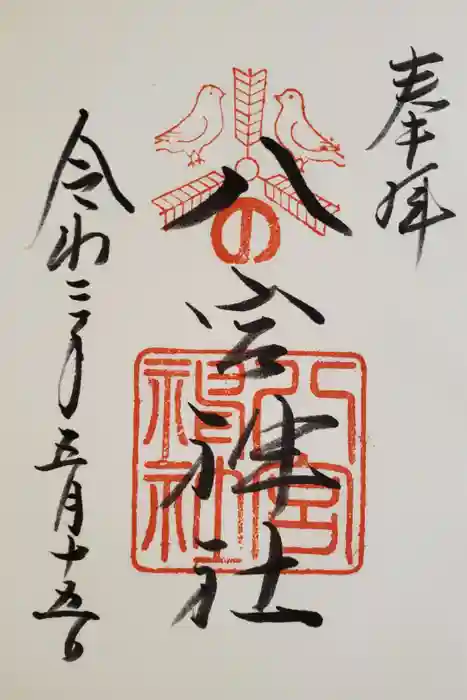 奉拝
八の宮神社
令和三年五月十五日
八宮
神社